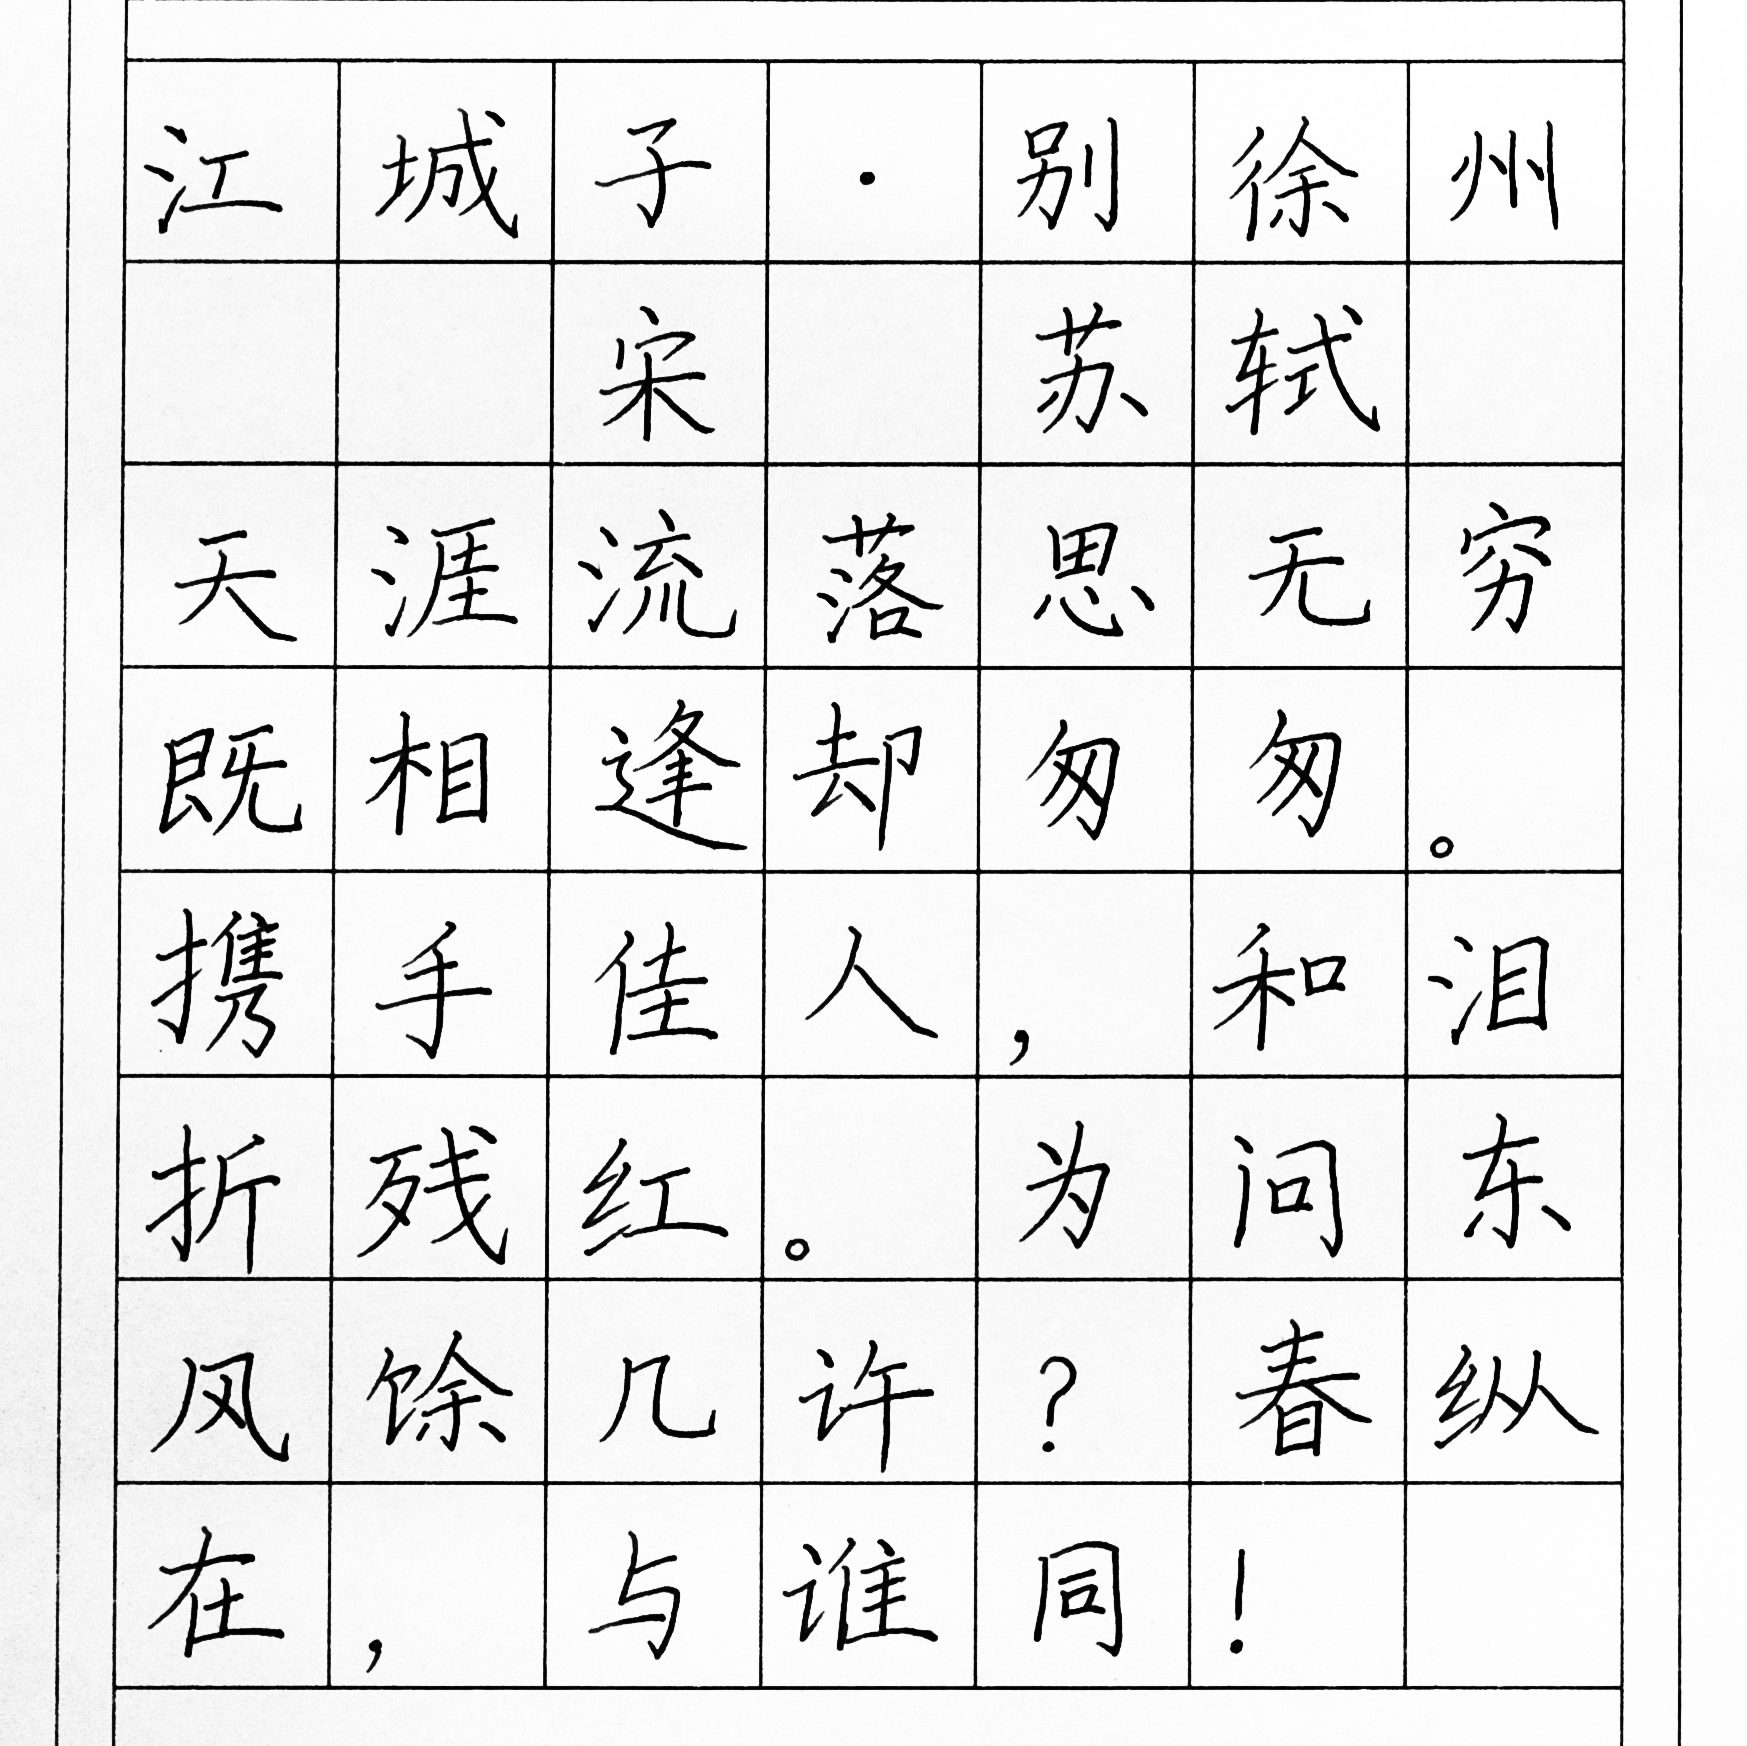 江城子·别徐州
宋 苏轼
天涯流落思无穷
既相逢却匆匆。
携手佳人，和泪
折残红。为问东
风馀几许？春纵
在，与谁同！